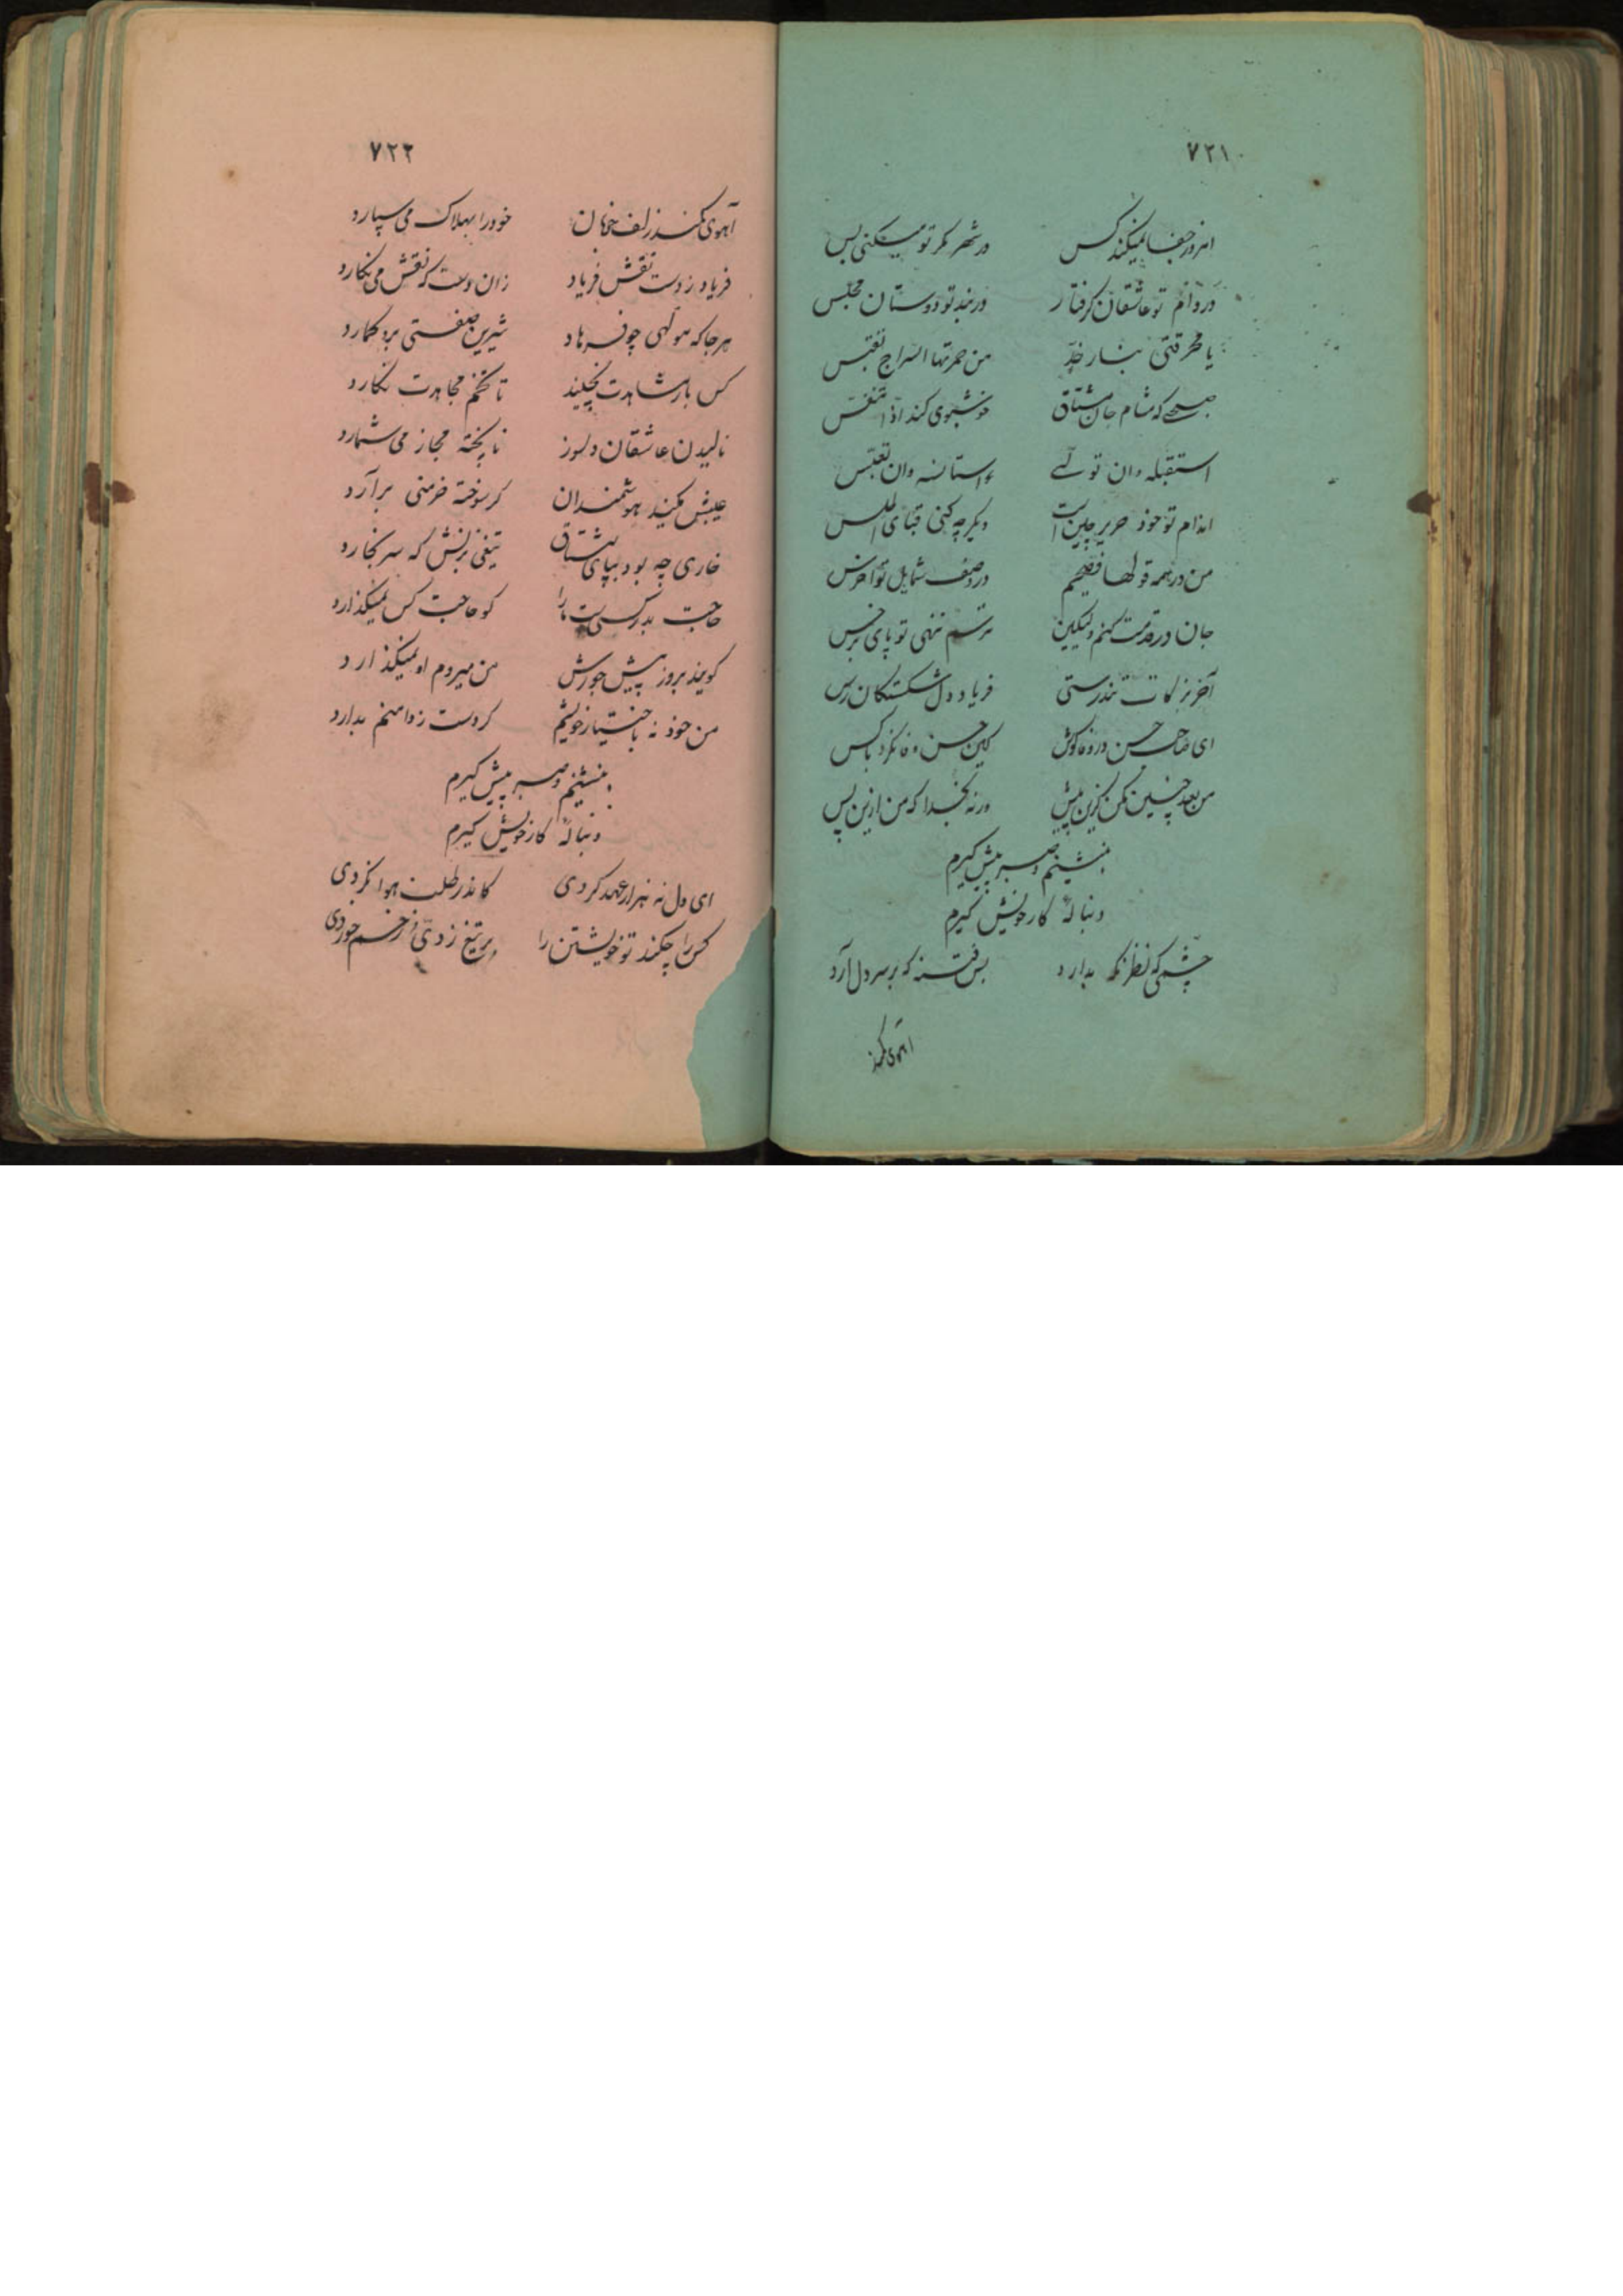 ۷۲۱
امروز جفا نمیکند کس در شهر مگر تو میکنی بس
در دام تو عاشقان گرفتار در بند تو دوستان محبس
یا محرقتی بنار خدّ من جمرتها السراج تقبس
صبحی که مشام جان مشتاق خوشبوی کند اذا تنفس
استقبله وان تولی استانسه وان تعبس
اندام تو خود حریر چین است دیگر چه کنی قبای اطلس
من در همه قولها فصیحم در وصف شمایل تو اخرس
جان در قدمت کنم ولیکن ترسم ننهی تو پای بر خس
آخر زکات تندرستی فریاد دل شکستگان رس
ای صاحب حسن در وفا کوش کین حسن وفا نکرد با کس
من بعد چنین مکن کزین پیش ورنه بخدا که من ازین پس
بنشینم و صبر پیش گیرم
دنبالهٔ کار خویش گیرم
چشمی که نظر نگه ندارد بس فتنه که بر سر دل آرد
آهوی کمند
۷۲۲
آهوی کمند زلف خوبان خود را بهلاک می سپارد
فریاد ز دست نقش فریاد زان دست که نقش می نگارد
هر جا که مولهی چو فرهاد شیرین صفتی برو گمارد
کس بار مشاهدت نچیند تا تخم مجاهدت نکارد
نالیدن عاشقان دلسوز ناپخته مجاز می شمارد
عیبش مکنید هوشمندان گر سوخته خرمنی برآرد
خاری چه بود بپای مشتاق تیغی بزنش که سر نخارد
حاجت بدر کسیست ما را کو حاجت کس نمیگذارد
گویند برو ز پیش جورش من میروم او نمیگذارد
من خود نه باختیار خویشم گر دست ز دامنم بدارد
بنشینم و صبر پیش گیرم
دنبالهٔ کار خویش گیرم
ای دل نه هزار عهد کردی کاندر طلب هوا نگردی
کس را چکند تو خویشتن را بر تیغ زدی و زخم خوردی